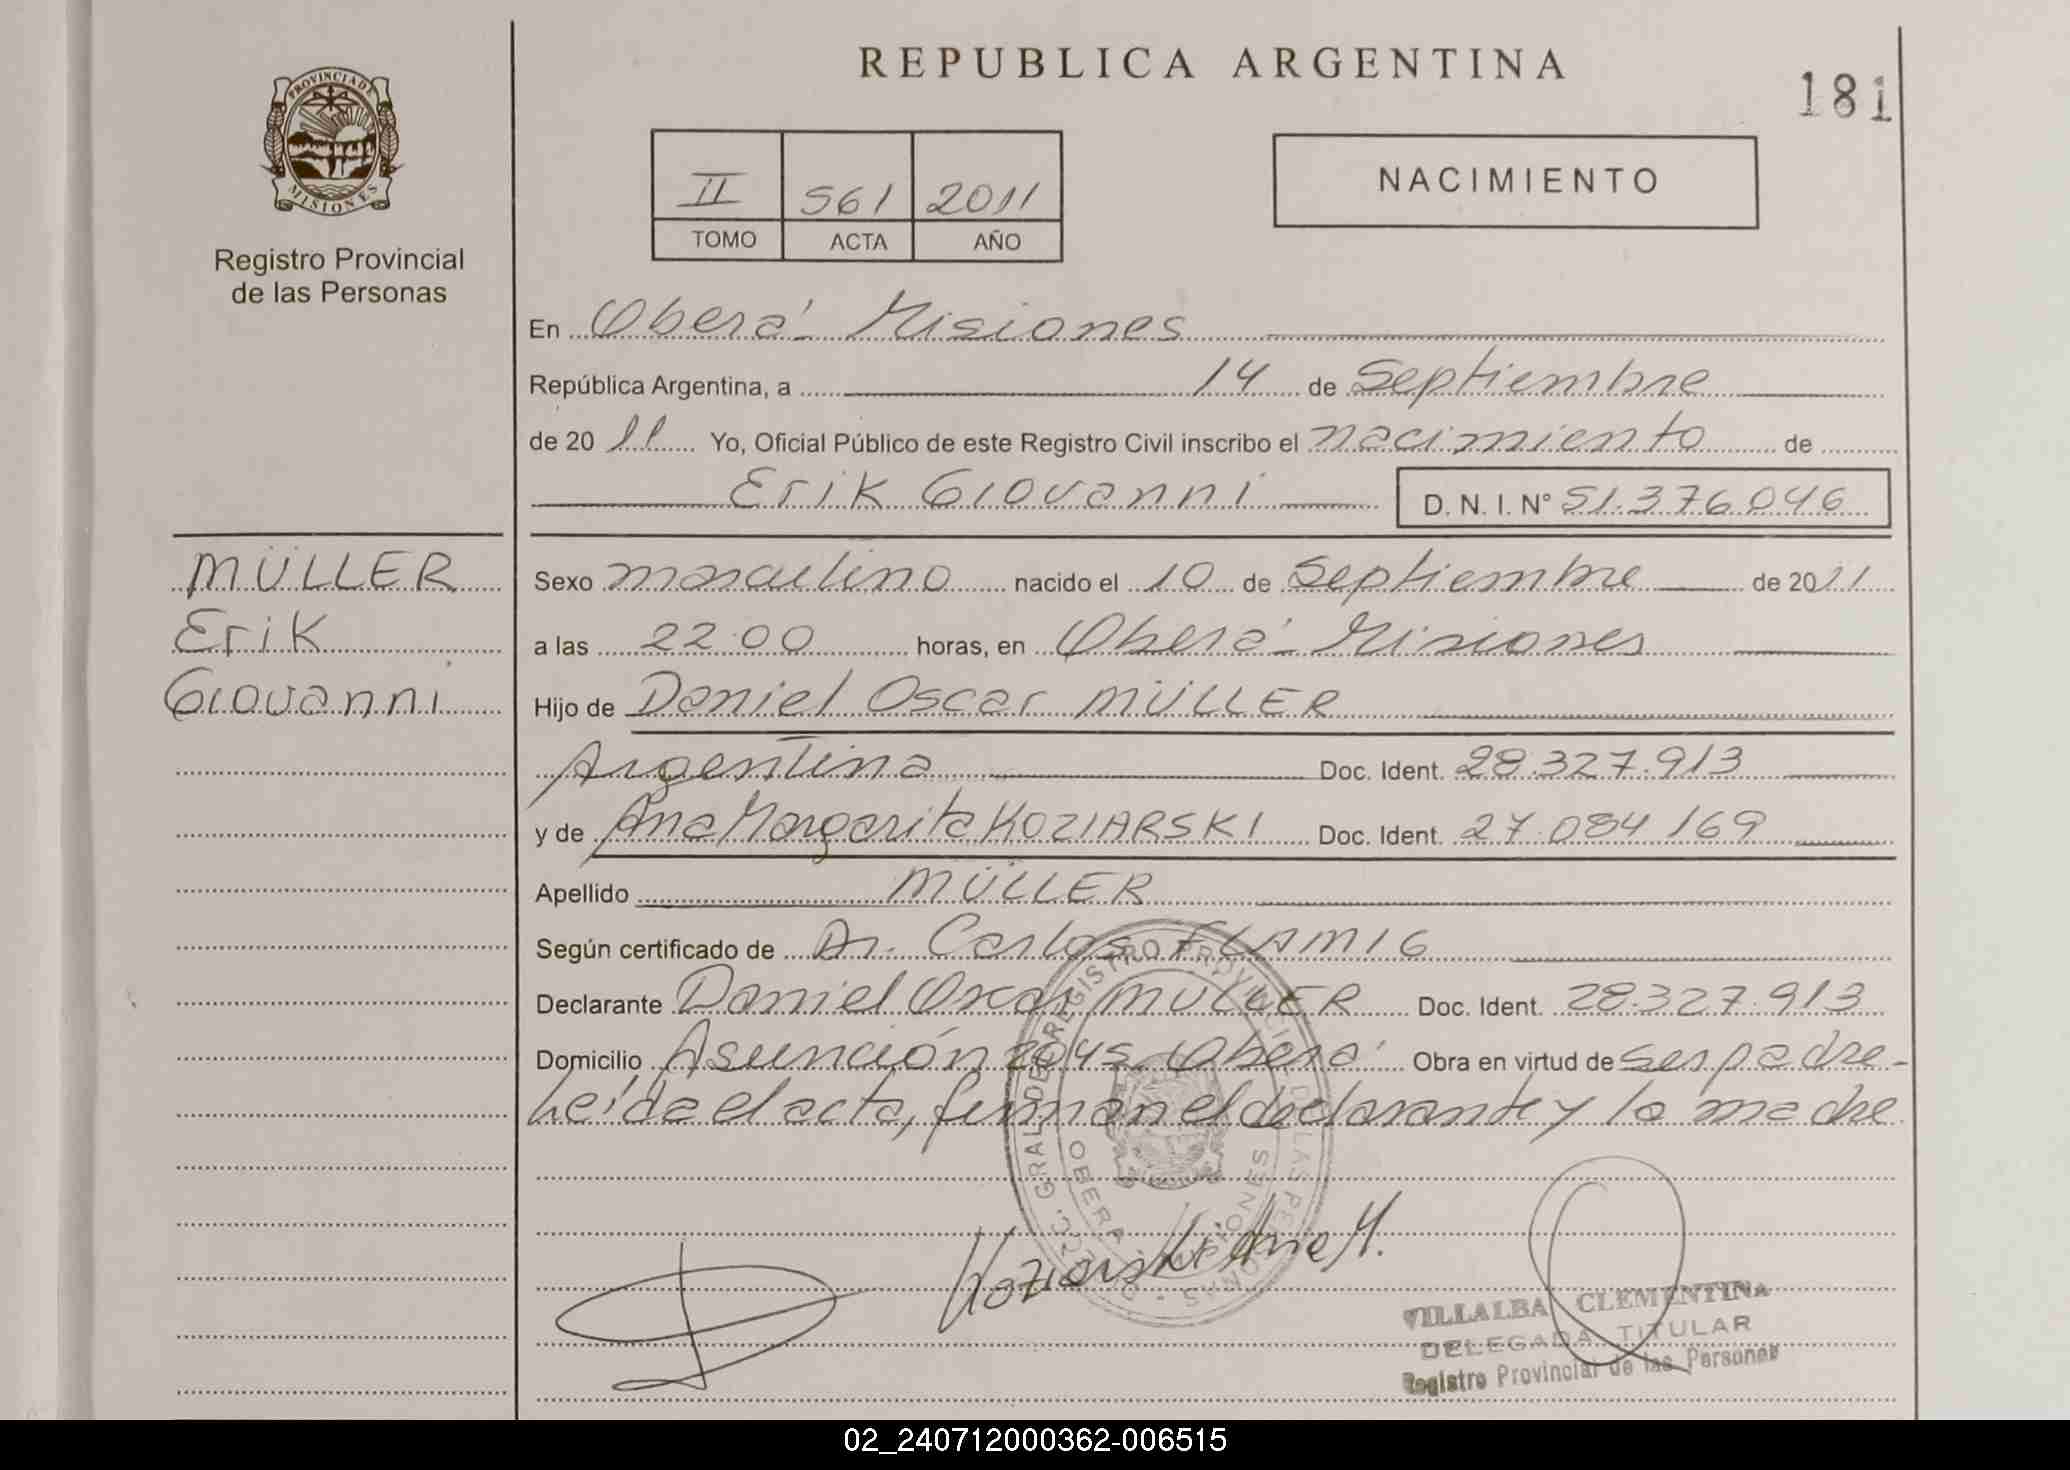 REPUBLICA ARGENTINA
181
PROVINCIA DE
MISIONES
Registro Provincial
de las Personas
II 561 2011
TOMO ACTA AÑO
NACIMIENTO
En Oberá - Misiones
República Argentina, a 14 de Septiembre
de 20 11 Yo, Oficial Público de este Registro Civil inscribo el nacimiento de
Erik Giovanni D. N. I. N° 51.376.046
MÜLLER
Erik
Giovanni
Sexo masculino nacido el 10 de Septiembre de 2011
a las 22:00 horas, en Oberá - Misiones
Hijo de Daniel Oscar MÜLLER
Argentina Doc. Ident. 28.327.913
y de Ana Margarita KOZIARSKI Doc. Ident. 27.084.169
Apellido MÜLLER
Según certificado de Dr. Carlos FLAMIG
Declarante Daniel Oscar MÜLLER Doc. Ident. 28.327.913
Domicilio Asunción 2045 Oberá Obra en virtud de ser padre-
Leída el acta, firman el declarante y la madre.
DIREC. GRAL. DEL REGISTRO PROVINCIAL DE LAS PERSONAS
OBERA MISIONES
Koziarski Ana M.
VILLALBA CLEMENTINA
DELEGADA TITULAR
Registro Provincial de las Personas
02_240712000362-006515